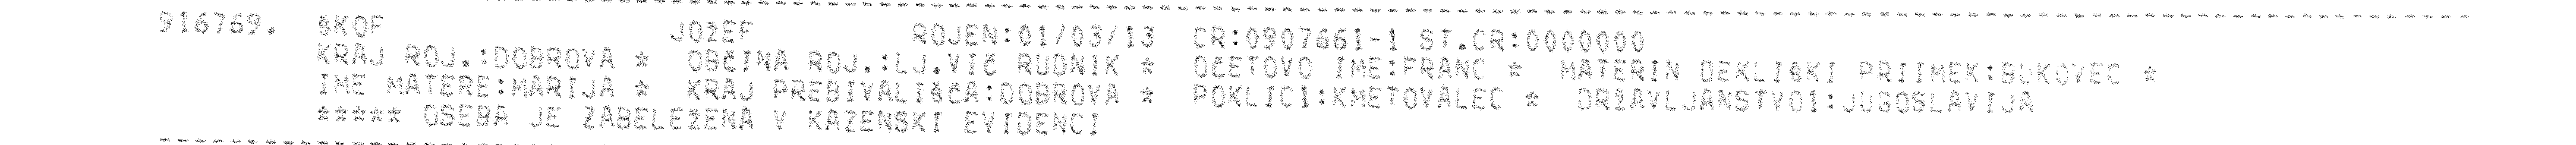 916769. ŠKOF JOŽEF ROJEN:01/03/13 CR:0907661-1 ST.CR:0000000
KRAJ ROJ.:DOBROVA * OBČINA ROJ.:LJ.VIČ RUDNIK * OČETOVO IME:FRANC * MATERIN DEKLIŠKI PRIIMEK:BUKOVEC *
IME MATERE:MARIJA * KRAJ PREBIVALIŠČA:DOBROVA * POKLIC1:KMETOVALEC * DRŽAVLJANSTVO1:JUGOSLAVIJA
***** OSEBA JE ZABELEŽENA V KAZENSKI EVIDENCI